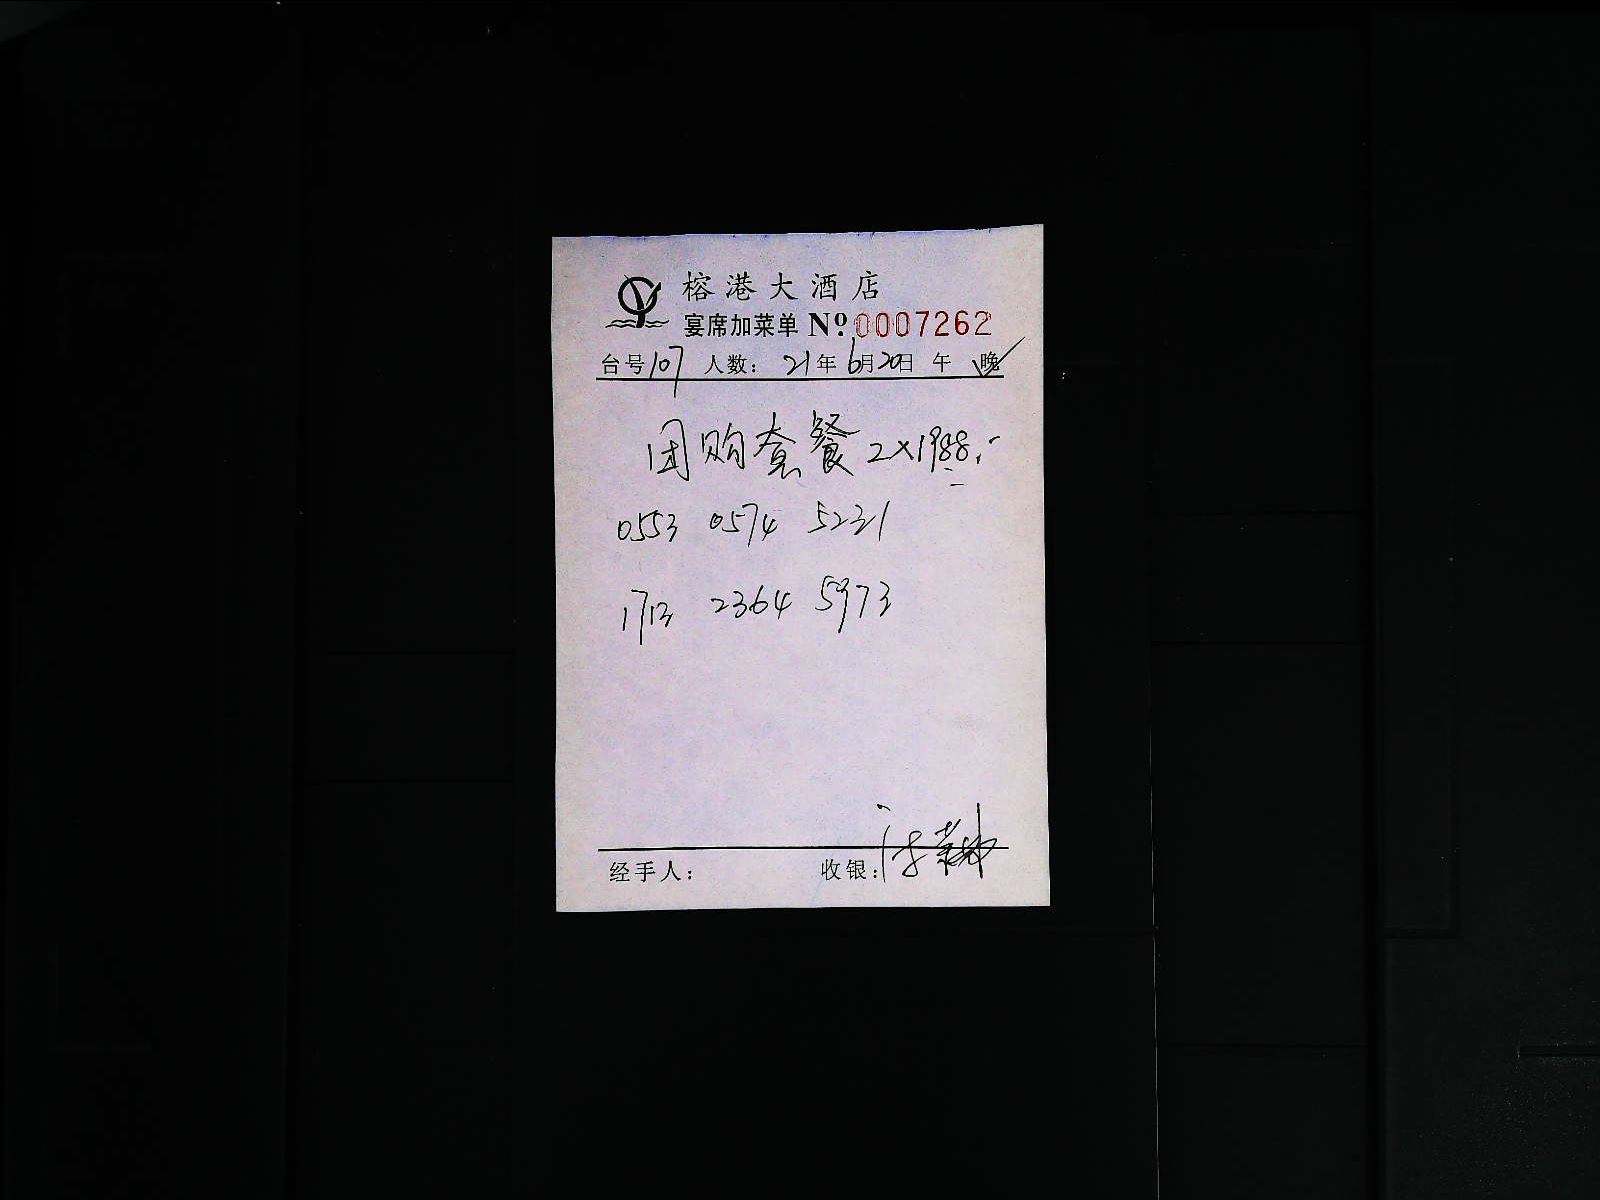 榕港大酒店
宴席加菜单 Nº 0007262
台号107 人数: 21年6月20日 午 晚✓
团购套餐 2×1988.-
0553 0574 5231
1713 2364 5973
经手人: 收银: